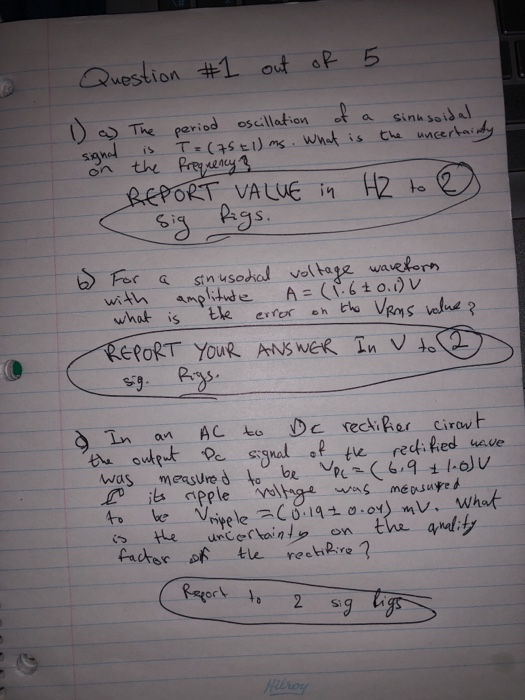 Question #1 out of 5
1) a) The period oscillation of a sinusoidal
signal is T = (75 ± 1) ms. What is the uncertainty
on the frequency?
REPORT VALUE in HZ to 2
sig figs.
b) For a sinusodial voltage waveform
with amplitude A = (1.6 ± 0.1) V
what is the error on the VRMS value?
REPORT YOUR ANSWER In V to 2
sig. figs.
In an AC to DC rectifier circut
the output DC signal of the rectified wave
was measured to be VDC = (6.9 ± 1.0) V
its ripple voltage was measured
to be Vripple = (0.19 ± 0.04) mV. What
is the uncertainty on the quality
factor of the rectifire?
Report to 2 sig figs
Hilroy